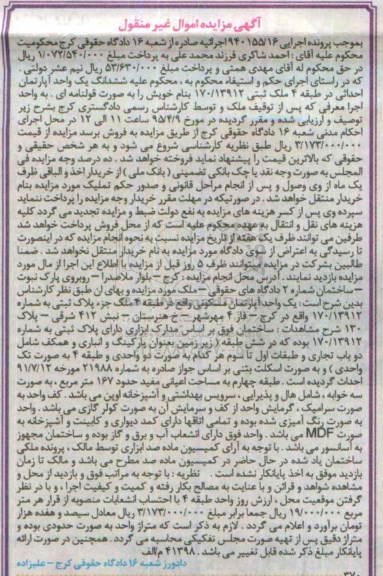 آگهی مزایده اموال غیر منقول
بموجب پرونده اجرایی ۹۴۰۱۵۵/۱۶ اجرائیه صادره از شعبه ۱۶ دادگاه حقوقی کرج محکومیت
محکوم علیه آقای : احمد شاکری فرزند محمد علی به پرداخت مبلغ ۱/۰۷۷/۵۴۰/۰۰۰ ریال
در حق محکوم له آقای مهدی همتی و پرداخت مبلغ ۵۳/۶۳۰/۰۰۰ ریال نیم عشر دولتی .
که در راستای اجرای حکم و استیفاء محکوم به ، محکوم علیه ششدانگ یک واحد آپارتمان
احداثی در طبقه ۴ ملک ثبتی ۱۷۰/۱۳۹۱۲ بنام خویش را به صورت قولنامه ای . به واحد
اجرا معرفی که پس از توقیف ملک و توسط کارشناس رسمی دادگستری کرج بشرح زیر
توصیف و ارزیابی شده و مقرر گردیده در مورخ ۹۵/۴/۹ ساعت ۱۱ الی ۱۲ در محل اجرای
احکام مدنی شعبه ۱۶ دادگاه حقوقی کرج از طریق مزایده به فروش برسد مزایده از قیمت
۳/۱۷۳/۰۰۰/۰۰۰ ریال طبق نظریه کارشناسی شروع می شود و به هر شخص حقیقی و
حقوقی که بالاترین قیمت را پیشنهاد نماید فروخته خواهد شد . ده درصد وجه مزایده فی
المجلس به صورت وجه نقد یا چک بانکی تضمینی ( بانک ملی ) از خریدار اخذ و الباقی ظرف
یک ماه از وی وصول و پس از انجام مراحل قانونی و صدور حکم تملیک مورد مزایده بنام
خریدار منتقل خواهد شد . در صورتیکه در مهلت مقرر خریدار وجه مزایده را پرداخت ننماید
سپرده وی پس از کسر هزینه های مزایده به نفع دولت ضبط و مزایده تجدید می گردد کلیه
هزینه های نقل و انتقال به عهده محکوم علیه است که از محل فروش پرداخت خواهد شد
طرفین می توانند ظرف یک هفته از تاریخ مزایده نسبت به نحوه انجام مزایده که در اینصورت
تا رسیدگی به اعتراض از سوی دادگاه مورد مزایده به نام خریدار منتقل نخواهد شد . ضمنا
طالبین شرکت در مزایده میتوانند ظرف ۵ روز قبل از مزایده با اطلاع این اجرا از مال مورد
مزایده بازدید نمایند . آدرس محل انجام مزایده : کرج - بلوار ملاصدرا – روبروی پارک نبوت
– ساختمان شماره ۲ دادگاه های حقوقی – ملک مورد مزایده و بهای آن طبق نظر کارشناس
بدین شرح است : یک واحد آپارتمان مسکونی واقع در طبقه ۴ ملک جزء پلاک ثبتی به شماره
۱۷۰/۱۳۹۱۲ واقع در کرج – فاز ۴ مهرشهر – خ هنرستان – نبش ۴۱۲ شرقی – پلاک
۱۳۰ شرح مشاهدات : ساختمان فوق بر اساس مدارک ابرازی دارای پلاک ثبتی به شماره
۱۷۰/۱۳۹۱۲ بوده که در شش طبقه ( زیر زمین بعنوان پارکینگ و انباری و همکف شامل
دو باب تجاری و طبقات اول تا سوم هر کدام به صورت دو واحدی و طبقه ۴ به صورت تک
واحدی ) و به صورت اسکلت بتنی بر اساس جواز صادره به شماره ۲۱۹۸۸ مورخه ۹۱/۷/۱۲
احداث گردیده است . طبقه چهارم به مساحت اعیانی مفید حدود ۱۶۷ متر مربع ، به صورت
سه خوابه ، شامل هال و پذیرایی ، سرویس بهداشتی و آشپزخانه اوپن می باشد . کف واحد به
صورت سرامیک ، گرمایش واحد از کف و سرمایش آن به صورت کولر گازی می باشد . واحد
به صورت رنگ آمیزی شده بوده و تمامی اتاقها دارای کمد دیواری و کابینت و آشپزخانه به
صورت MDF می باشد . واحد فوق دارای انشعاب آب و برق و گاز بوده و ساختمان مجهوز
به آسانسور می باشد . با توجه به آرای کمیسیون ماده صد ابرازی توسط مالک ، پرونده ملکی
ساختمان یاد شده در حال حاضر در کمیسیون ماده صد مطرح می باشد و مالک تا زمان
بازدید موفق به اخذ پایانکار نشده است . نظریه : با توجه به مراتب فوق و بازدید از محل و
مشاهده شواهد و قرائن و با عنایت به مصالح بکار رفته و کمیت و کیفیت اجراء ، و با در نظر
گرفتن موقعیت محل ، ارزش روز واحد طبقه ۴ با احتساب انشعابات منصوبه از قرار هر متر
مربع ۱۹/۰۰۰/۰۰۰ ریال جمعا برابر مبلغ ۳/۱۷۳/۰۰۰/۰۰۰ ریال معادل سیصد و هفده هزار
تومان برآورد و اعلام می گردد . لازم به ذکر است که متراژ واحد به صورت حدودی بوده و
متراژ دقیق پس از تهیه صورت مجلس تفکیکی محاسبه می گردد . همچنین در صورت ارائه
پایانکار مبلغ ذکر شده قابل تغییر می باشد . ۴۱۳۹۸ م الف
دادورز شعبه ۱۶ دادگاه حقوقی کرج – علیزاده
۳۷۰